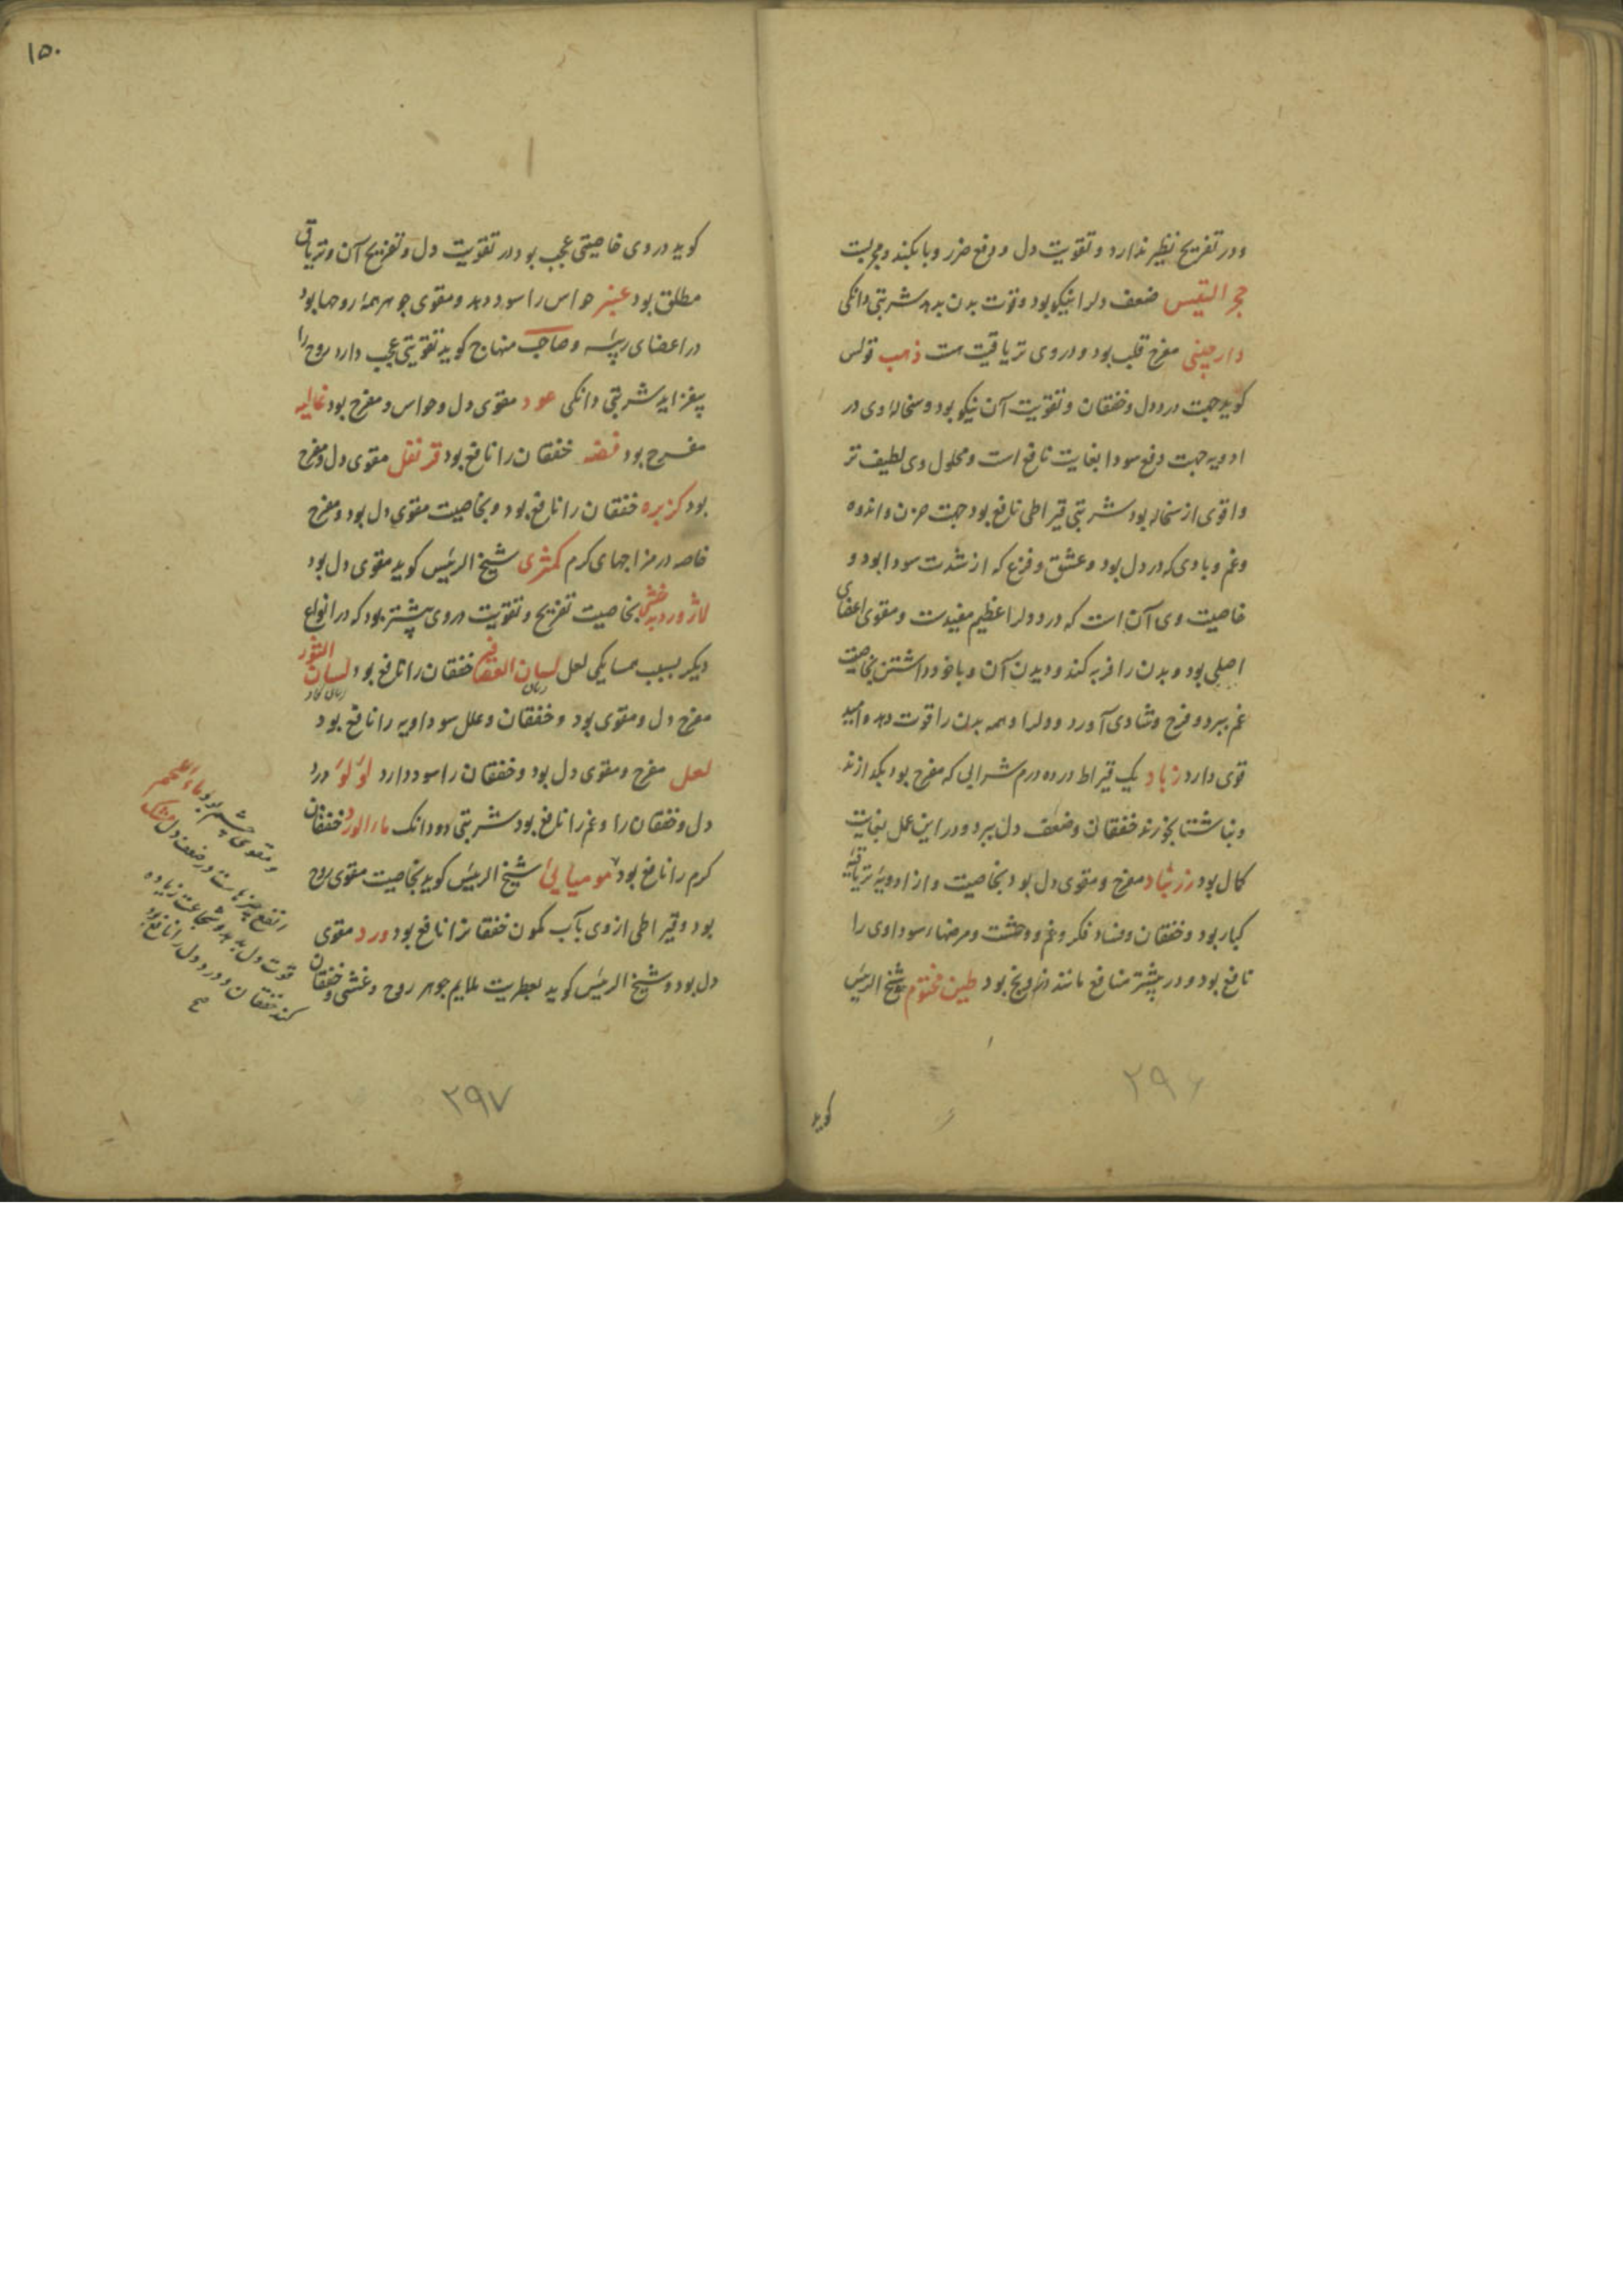 ودر تفریح نظیر ندارد و تقویت دل و دفع ضرر وبا بکند و مجربست
حجر التیس ضعف دلرا نیکو بود و قوت بدن بدهد شربتی دانکی
دارچینی مفرح قلب بود و دروی تریاقیت هست ذهب قولس
کوید جهت درد دل و خفقان و تقویت آن نیکو بود و سخاله وی در
ادویه جهت دفع سودا بغایت نافع است و محلول وی لطیف تر
و اقوی از سخاله بود شربتی قیراطی نافع بود جهت حزن و اندوه
وغم و بادی که در دل بود و عشق و فزع که از شدت سودا بود و
خاصیت وی آن است که درد دلرا عظیم مفیدست و مقوی اعضای
اصلی بود و بدن را فربه کند و دیدن آن و با خود داشتن بخاصیت
غم ببرد و فرح و شادی آورد و دلرا و همه بدن را قوت دهد و امید
قوی دارد زباد یک قیراط در ده درم شرابی که مفرح بود بکدازند
و بناشتا بخورند خفقان و ضعف دل ببرد و در این عمل بغایت
کمال بود زرنباد مفرح و مقوی دل بود بخاصیت و از ادویۀ تریاقیۀ
کبار بود و خفقان و فساد فکر و غم و وحشت و مرضهاء سوداوی را
نافع بود و در بیشتر منافع مانند درونج بود طین مختوم شیخ الرئیس
کوید
۲۹۶
۱۵۰
کوید در وی خاصیتی عجب بود در تقویت دل و تفریح آن و تریاق
مطلق بود عنبر حواس را سود دهد و مقوی جوهر همه روحها بود
در اعضای رئیسه و صاحب منهاج کوید تقویتی عجب دارد روح را
بیفزاید شربتی دانکی عود مقوی دل و حواس و مفرح بود غالیه
مفرح بود فضه خفقان را نافع بود قرنفل مقوی دل و مفرح
بود کزبره خفقان را نافع بود و بخاصیت مقوی دل بود و مفرح
خاصه در مزاجهای کرم کمثری شیخ الرئیس کوید مقوی دل بود
لاژورد بدخشی بخاصیت تفریح و تقویت در وی بیشتر بود که در انواع
دیکر بسبب همسایکی لعل لسان العصافیر خفقان را نافع بود لسان الثور
مفرح دل و مقوی بود و خفقان و علل سوداویه را نافع بود
لعل مفرح و مقوی دل بود و خفقان را سود دارد لؤلؤ درد
دل و خفقان را و غم را نافع بود شربتی دو دانک ماء الورد خفقان
کرم را نافع بود مومیایی شیخ الرئیس کوید بخاصیت مقوی روح
بود و قیراطی ازوی بآب کمون خفقانرا نافع بود ورد مقوی
دل بود و شیخ الرئیس کوید بعطریت ملایم جوهر روح و غشی و خفقان
و مقوی چشم بود ماء اللحم
انفع چیزهاست در ضعف دل مشک
قوت دل بدهد و شجاعت زیاده
کند خفقان و درد دل را نافع بود
۲۹۷